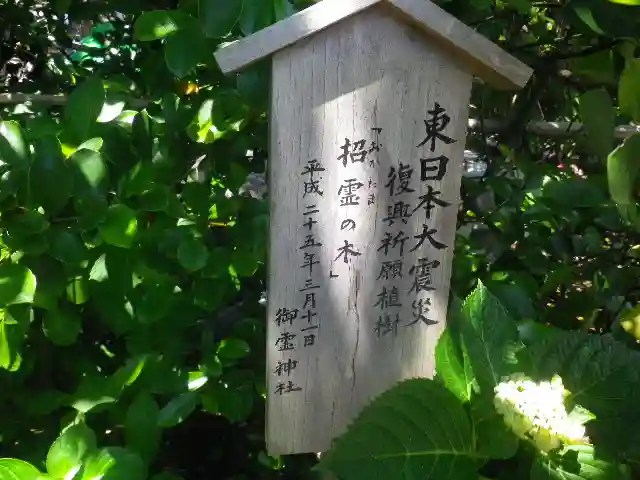 東日本大震災
復興祈願植樹
「招霊の木」
おがたま
平成二十五年三月十一日
御霊神社